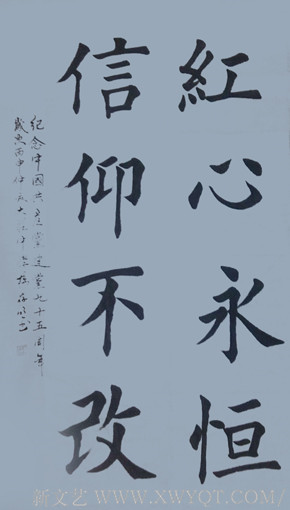 紅心永恒
信仰不改
纪念中国共产党建党九十五周年
歲次丙申仲夏
新文艺 WWW.XWYQT.COM/